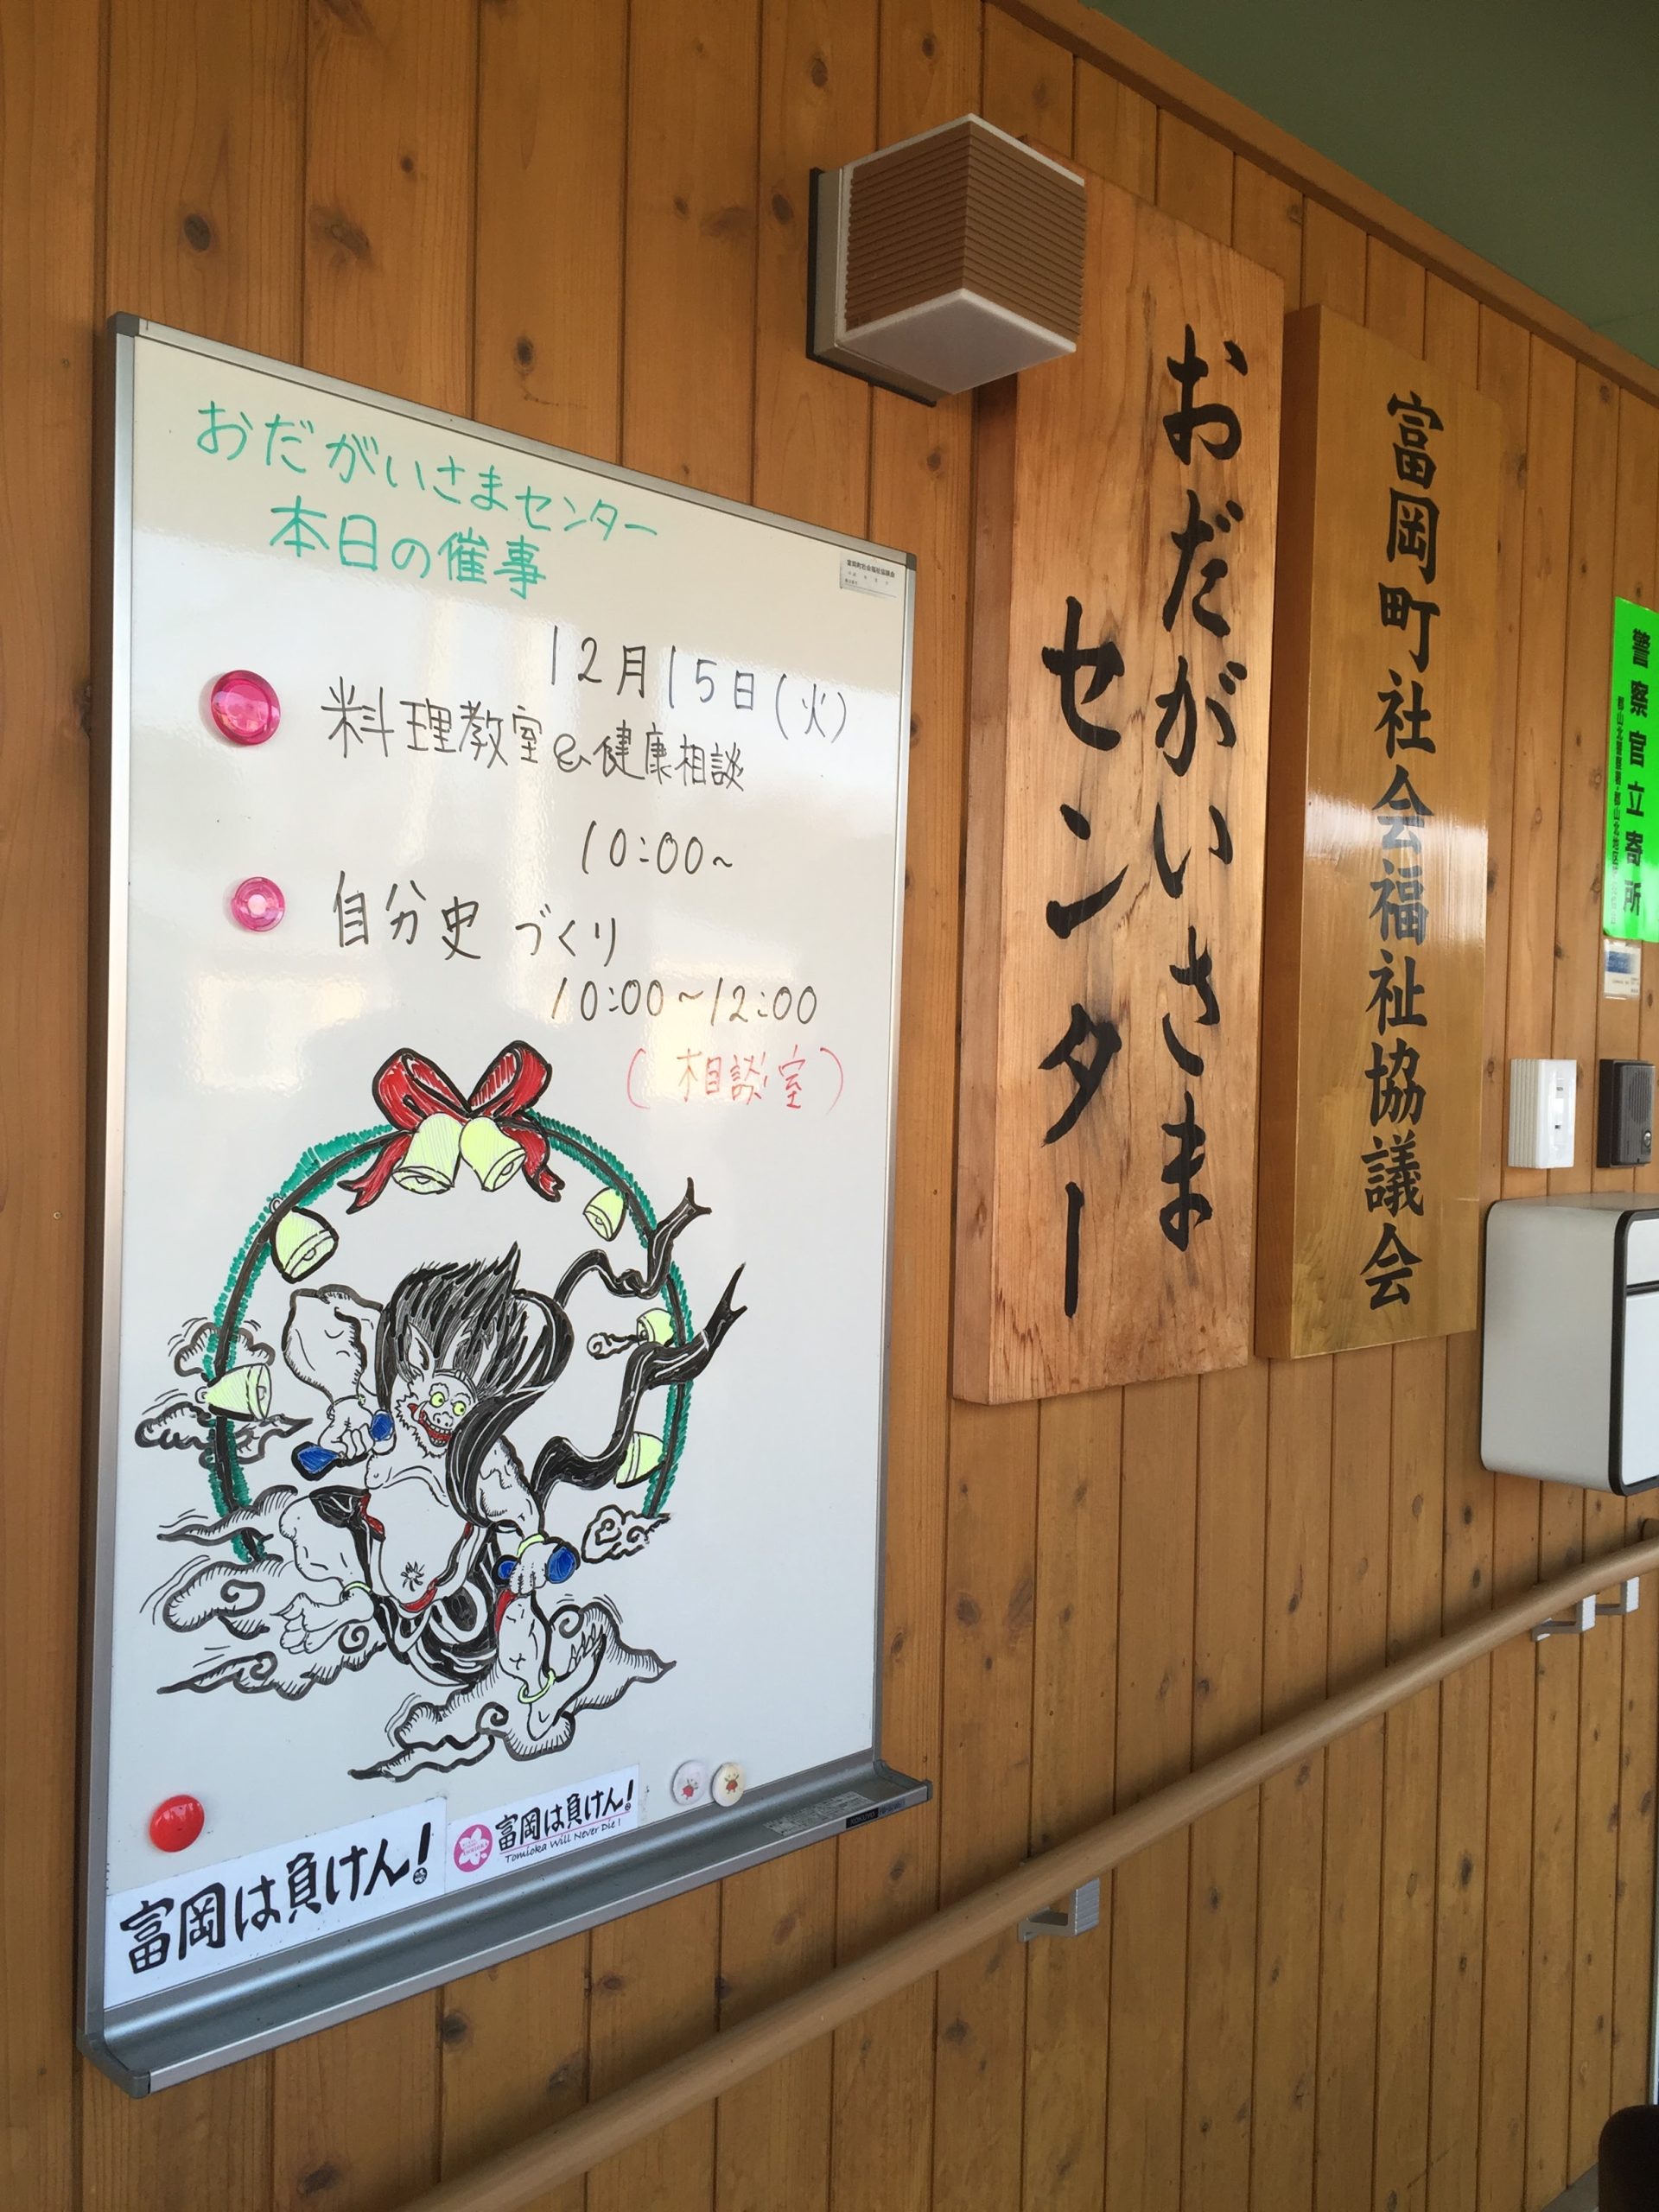 おだがいさまセンター
本日の催事
12月15日(火)
料理教室&健康相談
10:00~
自分史づくり
10:00~12:00
(相談室)
富岡は負けん!
富岡は負けん!
Tomioka Will Never Die!
富岡町社会福祉協議会
KOKUYO
おだがいさま
センター
富岡町社会福祉協議会
警察官立寄所